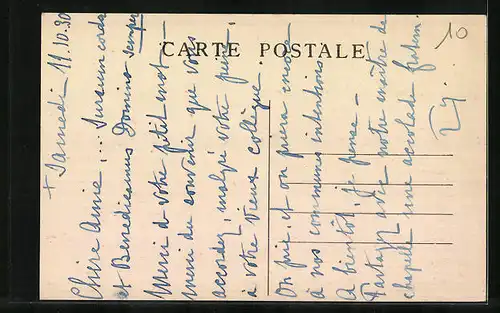 CARTE POSTALE
10
+ Samedi 11.10.30
Chère Amie... Sursum corda
et Benedicamus Domino semper
Merci de votre petit mot –
merci du souvenir que vous
accordez, malgré votre peine
à votre vieux collègue.
On prie, et on priera encore
à nos communes intentions.
A bientôt, je pense –
Partagez avec notre maître de
chapelle une accolade fratern.